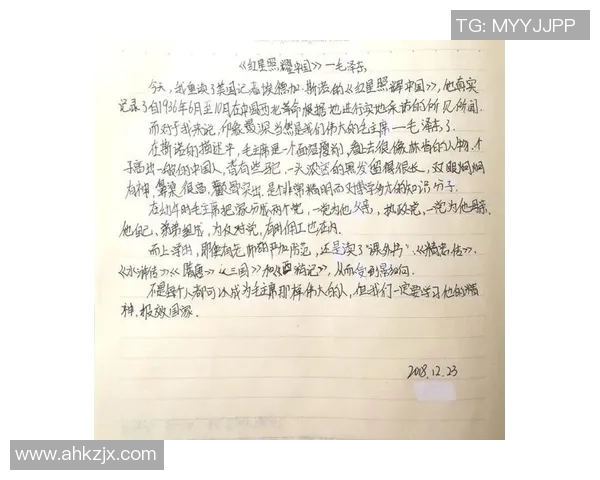 TG: MYYJJPP
《红星照耀中国》—毛泽东
今天,我重读了美国记者埃德加·斯诺的《红星照耀中国》,他真实
记录了自1936年6月至10月在中国西北革命根据地进行实地采访的所见所闻.
而对于我来说,印象最深当然是我们伟大的毛主席——毛泽东了.
在斯诺的描述中,毛主席是一个面容瘦削,看上去很像林肯的人物,个
子高出一般的中国人,背有些驼,一头浓密的黑发留得很长,双眼炯炯
有神,鼻梁很高,颧骨突出.是个非常精明的知识分子.
在幼年时毛主席把家分成两个党,一党为他父亲,执政党,一党为他母亲、
他自己、弟弟组成,为反对党,有时佣工也在内.
而上学时,即使有先师的严加防范,还是读了"课外书".《精忠传》、
《水浒传》《隋唐》《三国》和《西游记》,从而受到影响.
不是每个人都可以成为毛主席那样伟大的人,但我们一定要学习他的精
神,报效国家.
2018.12.23
www.ahkzjx.com